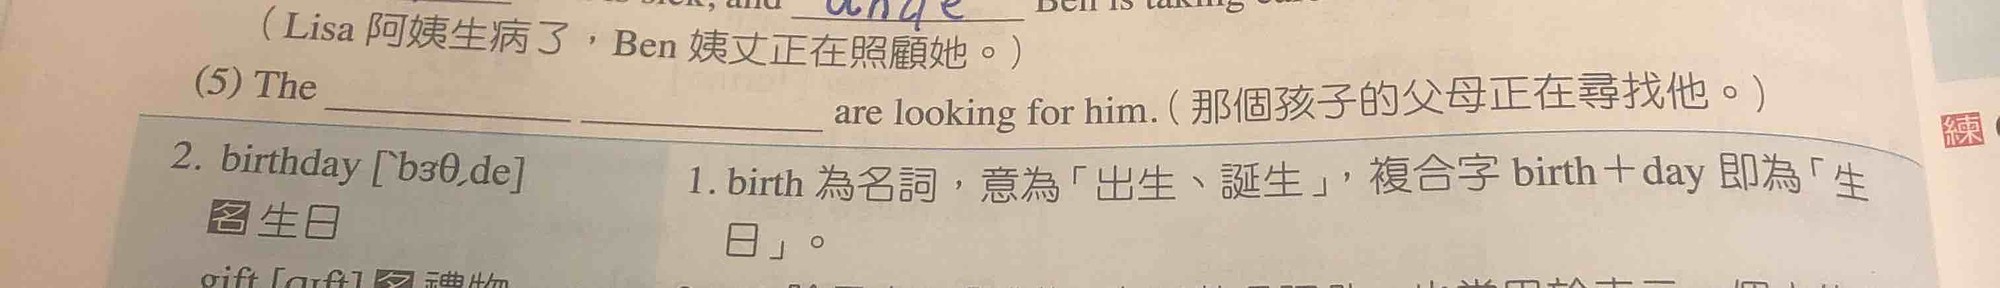 （Lisa 阿姨生病了，Ben 姨丈正在照顧她。）
(5) The ____________ ____________ are looking for him.（那個孩子的父母正在尋找他。）
練
2. birthday [ˋbɝθˏde]
名 生日
1. birth 為名詞，意為「出生、誕生」，複合字 birth＋day 即為「生
日」。
gift [gɪft] 名 禮物